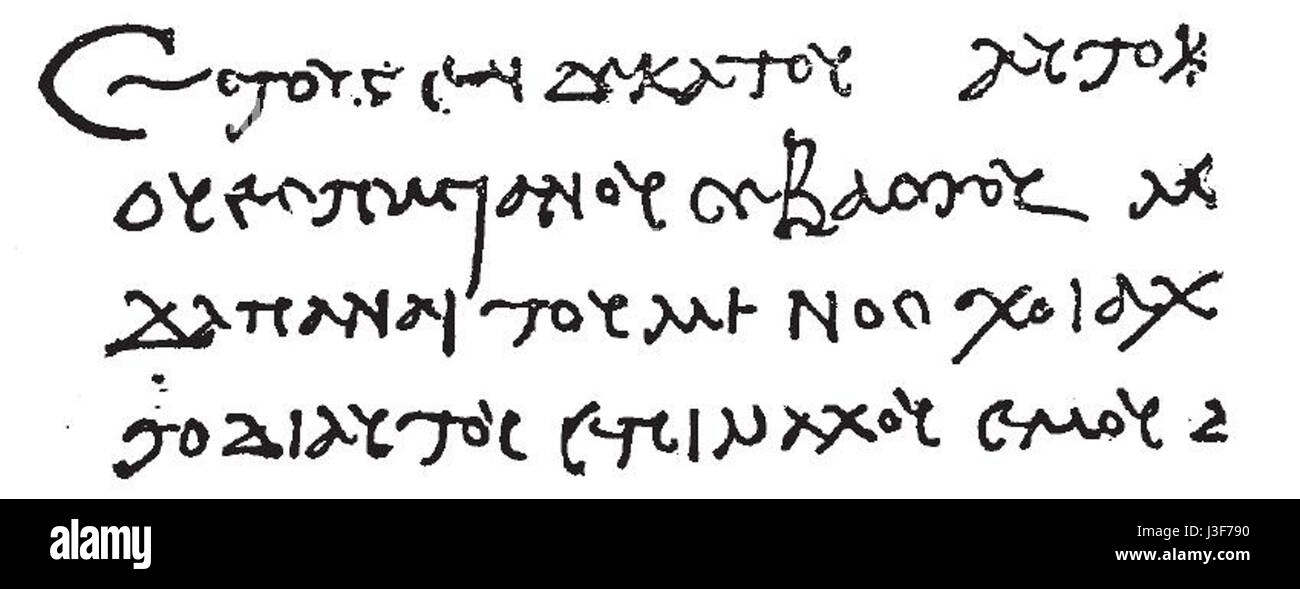 ετους ενδεκατου αυτοκ
ουεσπασιανου σεβαστου
δαπαναι του μηνος χοιαχ
αυτου επειμαχου εμου
alamy
Image ID: J3F790
www.alamy.com